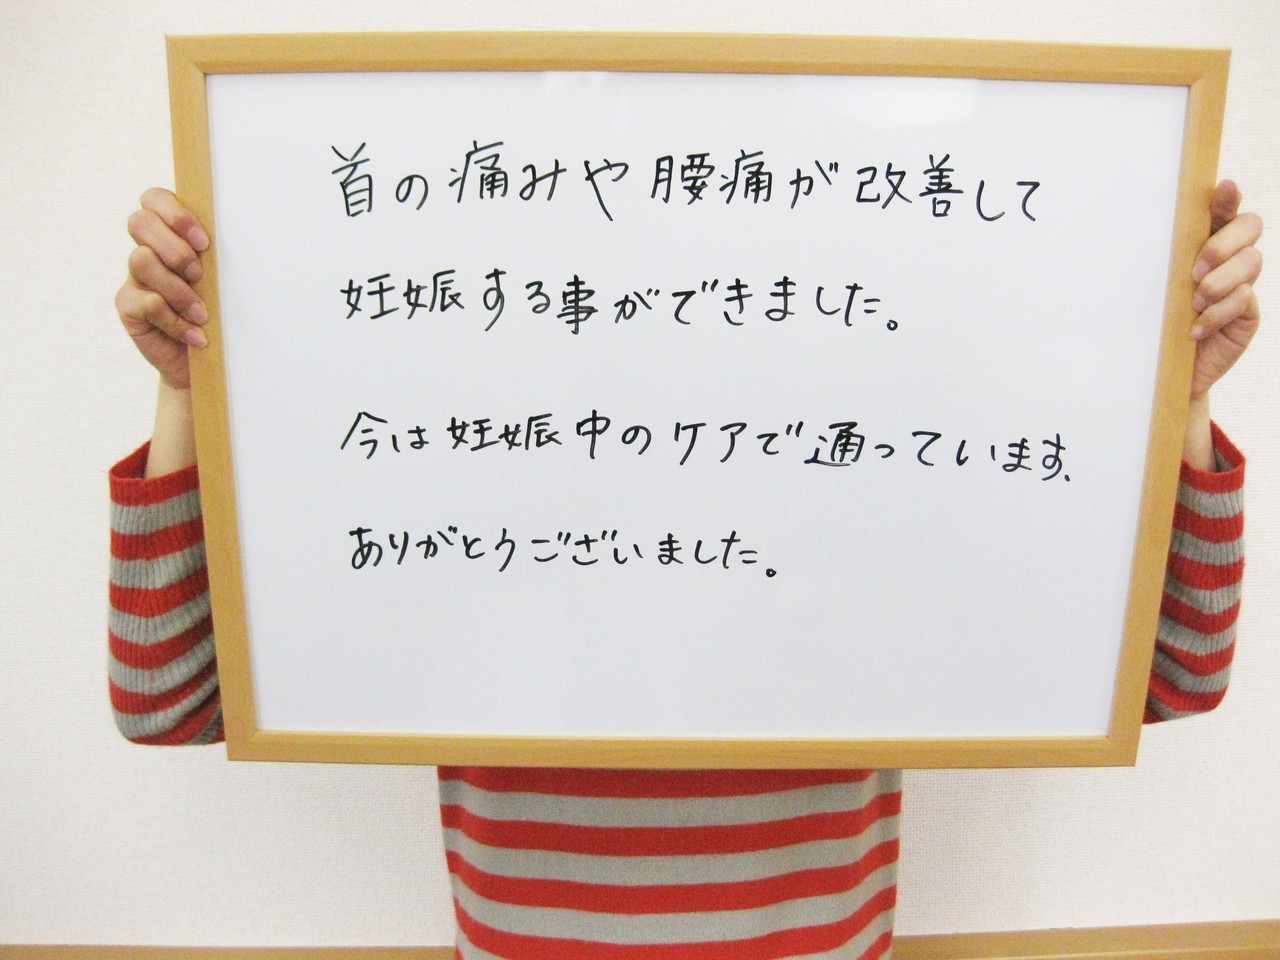 首の痛みや腰痛が改善して
妊娠する事ができました。
今は妊娠中のケアで通っています、
ありがとうございました。